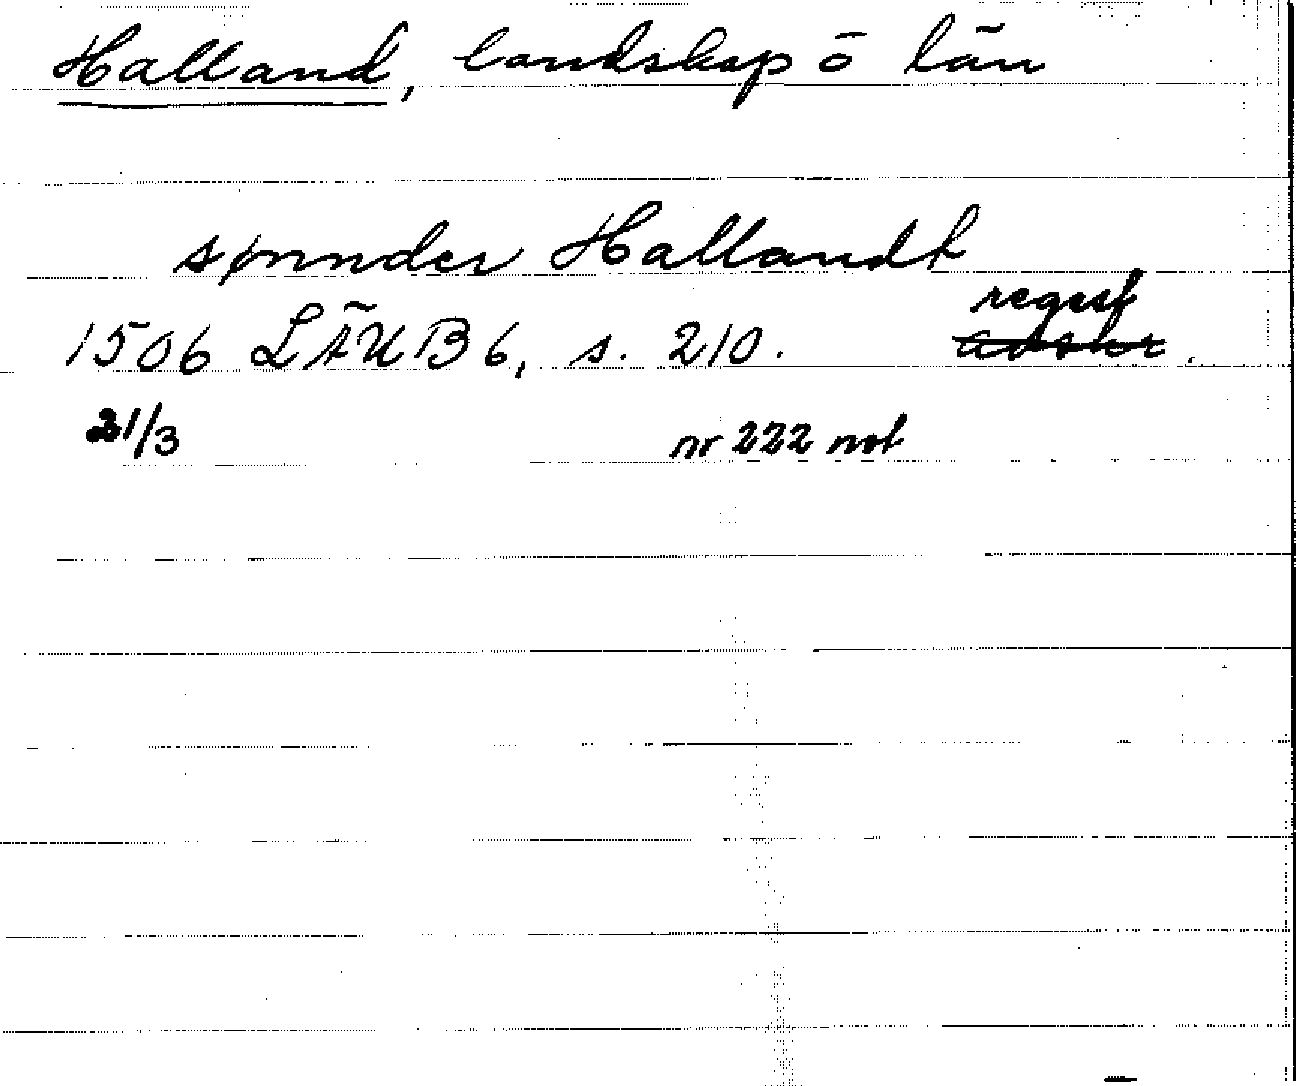 Halland, landskap o län
synnder Hallandt
regest
1506 LÄUB 6, s. 210. avskr.
21/3 nr 222 not